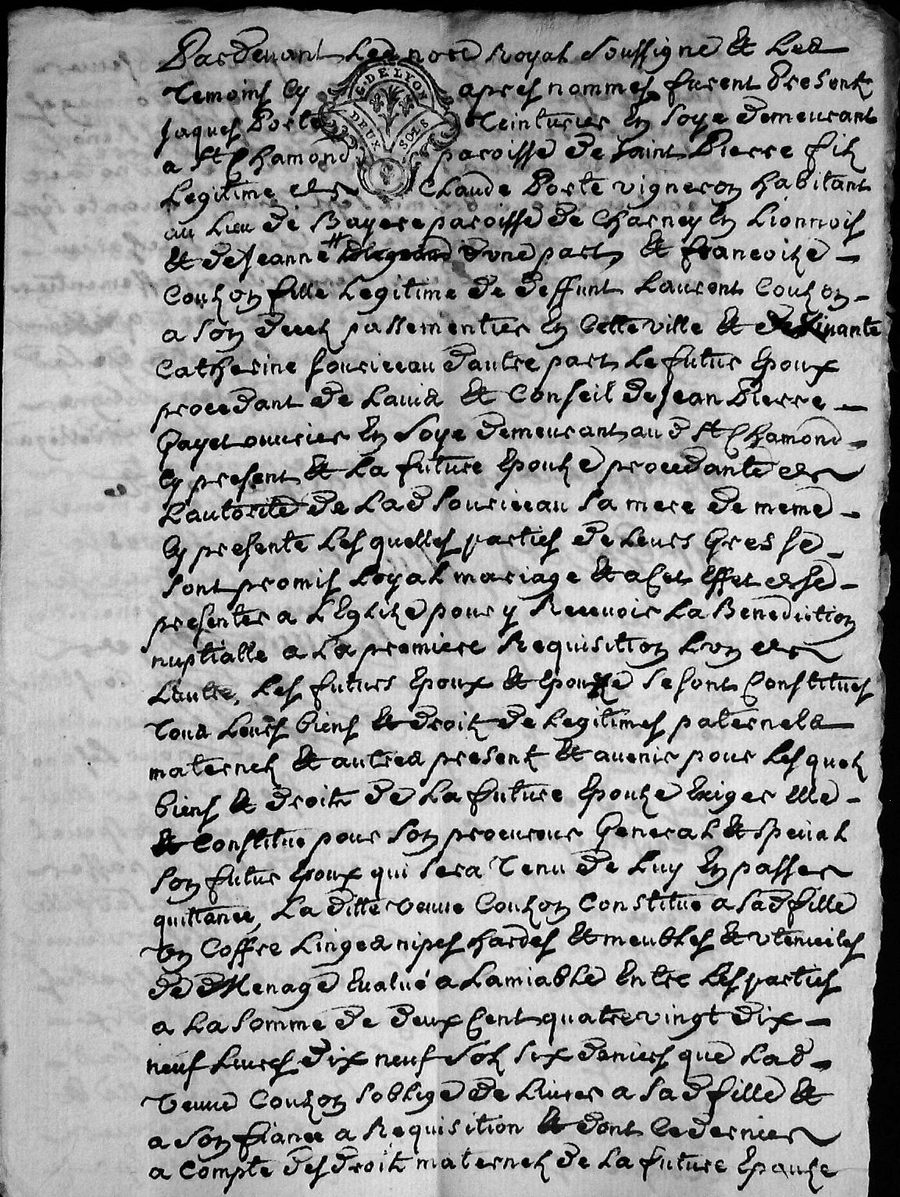 Pardevant Led nore Royal Soussigné & Les
Temoins Cy apres nommes furent Present
G. DE LYON
DEUX SOLS
Jaques Porte Teinturier En Soye demeurant
a St Chamond paroisse de Saint Pierre fils
Legitime de Claude Porte vigneron habitant
au Lieu de Bayere paroisse de Charney En Lionnois
& de Jeanne d'une part & francoise
Couzon fille Legitime de deffunt Laurent Couzon
a son deceds passementier En Cette ville & de vivante
Catherine Souriceau dautre part Le futur Epoux
procedant de Lavis & Conseil de Jean Pierre
Gayet ouvrier En Soye demeurant aud St Chamond
Cy present & La future Epouze procedante de
Lautorité de Lad Souriceau Sa mere de meme
Cy presente Lesquelles parties de Leurs Gres se
sont promis Loyal mariage & a Cet Effet de se
presenter a L'Eglize pour y Recevoir La Benediction
nuptialle a La premiere Requisition Lun de
Lautre, Les futurs Epoux & Epouze se sont Constitues
Tous Leurs biens & droits de Legitimes paternels
maternels & autres presents & avenir pour Lesquels
biens & droits de La future Epouze Exiger Elle
& Constitue pour Son procureur General & special
Son futur Epoux qui sera Tenu de Luy En passer
quittance, La ditte veuve Couzon Constitue a Sad fille
un Coffre Linges nipes hardes & meubles & utenciles
de Menage Evalué a Lamiable Entre Les parties
a La Somme de deux Cent quatre vingt dix
neuf Livres dix neuf Sols six deniers que Lad
veuve Couzon soblige de Livrer a Sad fille &
a Son fiance a Requisition & dont Ce dernier
a Compte des droits maternels de La future Epouze